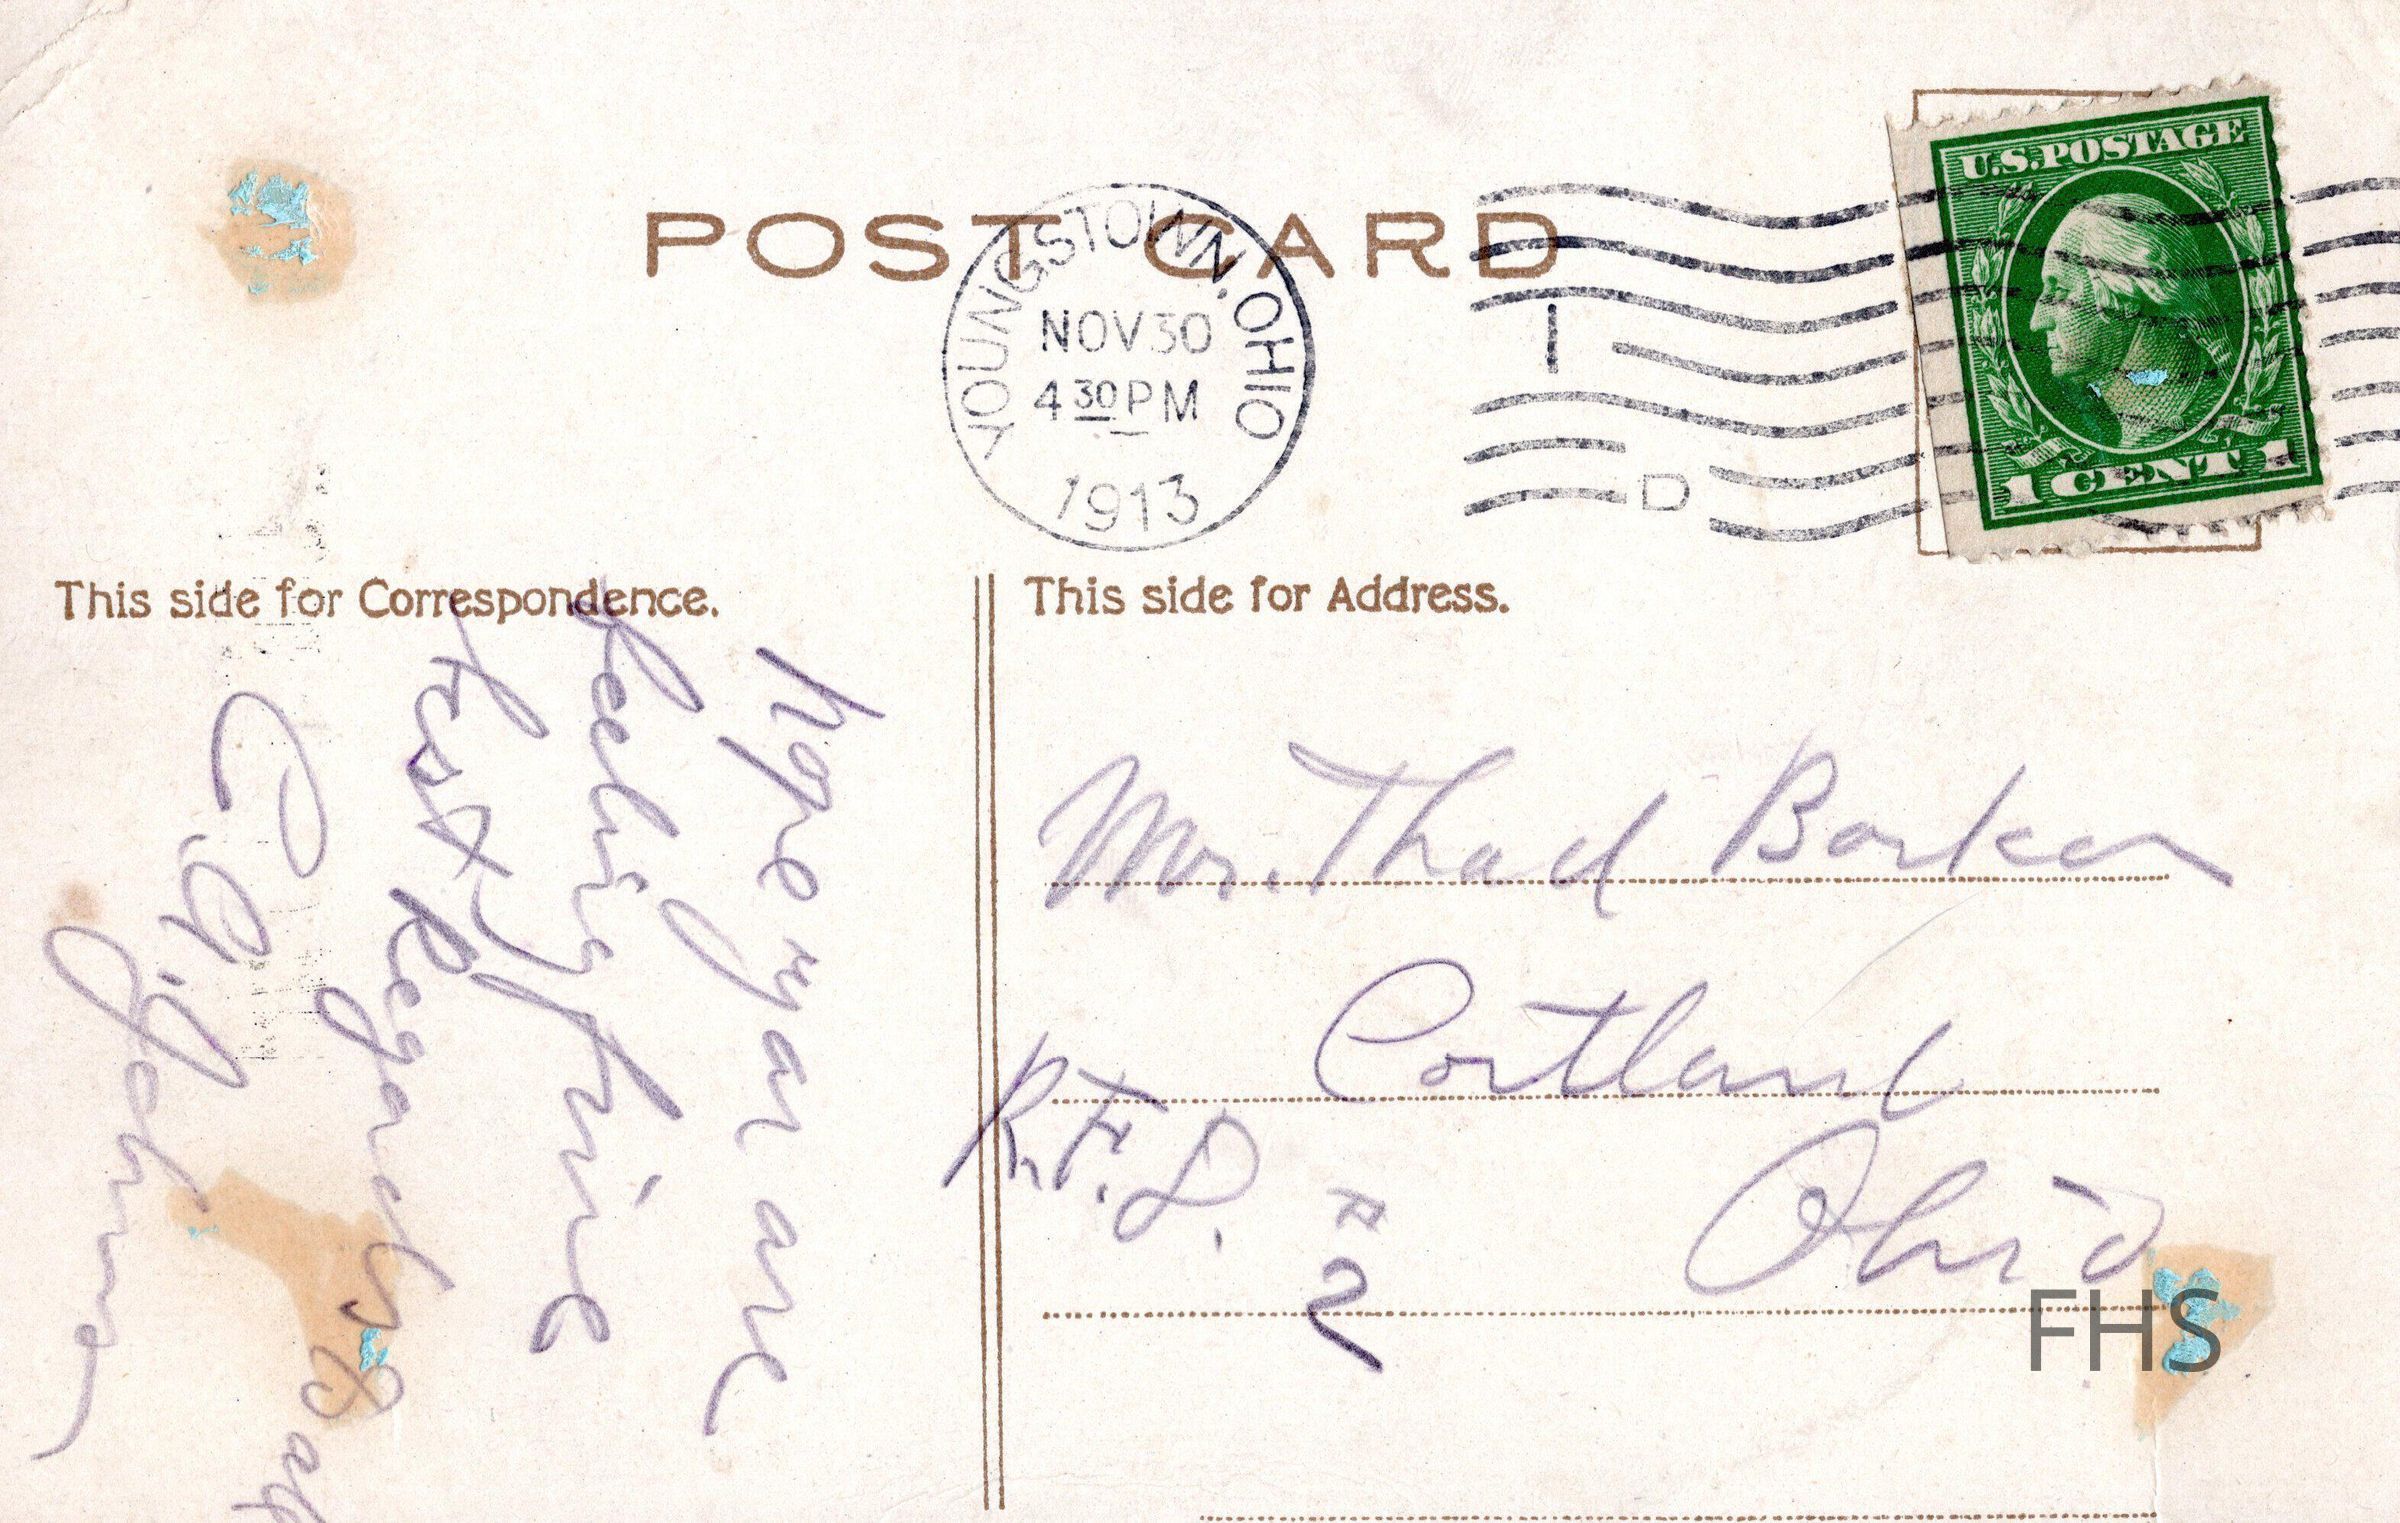 POST CARD
YOUNGSTOWN, OHIO
NOV 30
4 30 PM
1913
I
D
U.S. POSTAGE
1 CENT 1
This side for Correspondence.
hope you are
feeling fine
Regards to
C. A.
This side for Address.
Mr. Thad Barker
Cortland
R.F.D. #2
Ohio
FHS